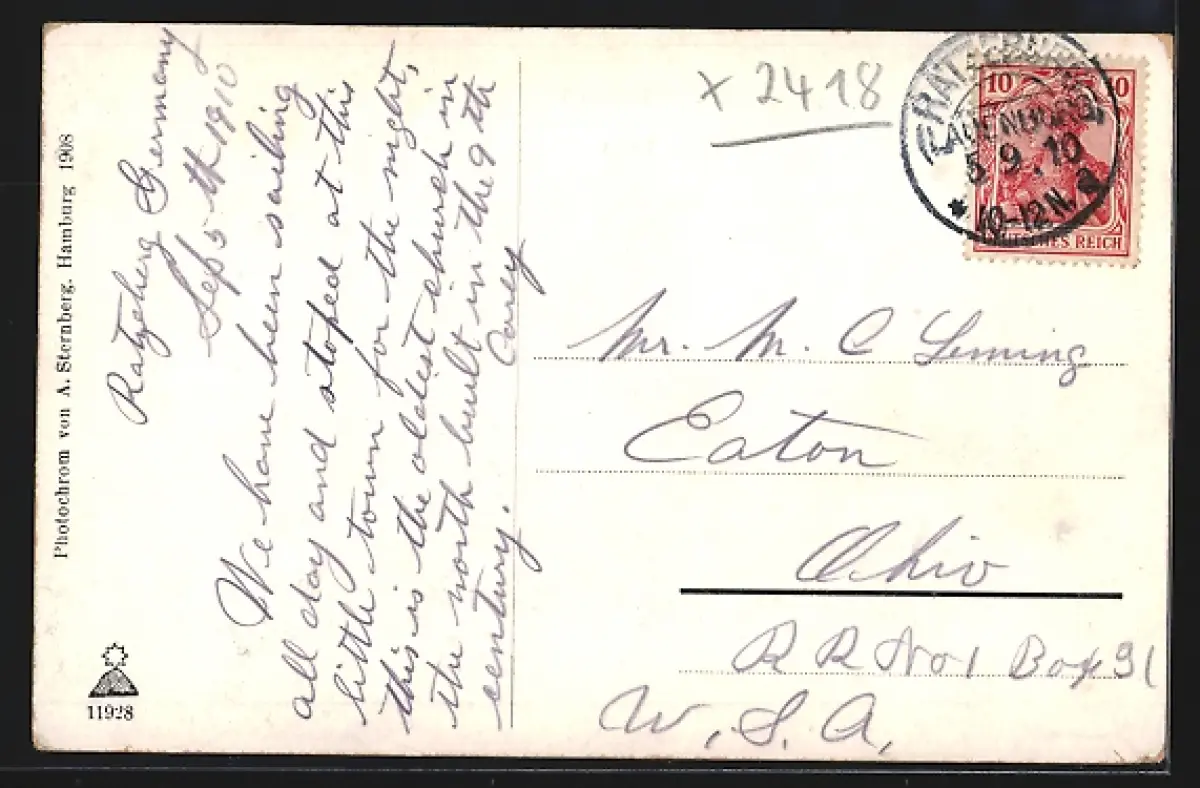 Ratzeberg Germany
Sep 5th 1910
We have been sailing
all day and stoped at this
little town for the night,
this is the oldest church in
the north built in the 9th
century.
Carey
Photochrom von A. Sternberg, Hamburg 1908
11928
x 2418
10 10
DEUTSCHES REICH
5 9.10
* 10-12 N.
Mr. M. C Leming
Eaton
Ohio
R R No 1 Box 31
U. S. A.